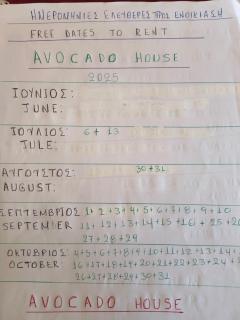 ΗΜΕΡΟΜΗΝΙΕΣ ΕΛΕΥΘΕΡΕΣ ΠΡΟΣ ΕΝΟΙΚΙΑΣΗ
FREE DATES TO RENT
AVOCADO HOUSE
2025
ΙΟΥΝΙΟΣ:
JUNE:
ΙΟΥΛΙΟΣ: 6 + 13
JULE:
ΑΥΓΟΥΣΤΟΣ: 30+31
AUGUST:
ΣΕΠΤΕΜΒΡΙΟΣ 1+2+3+4+5+6+7+8+9+10
SEPTEMBER 11+12+13+14+15+16+
27+28+29
ΟΚΤΩΒΡΙΟΣ 4+5+6+7+8+9+10+11+12+13+14+
OCTOBER: 16+17+18+19+20+21+22+23+24+
26+27+28+29+30+31
AVOCADO HOUSE